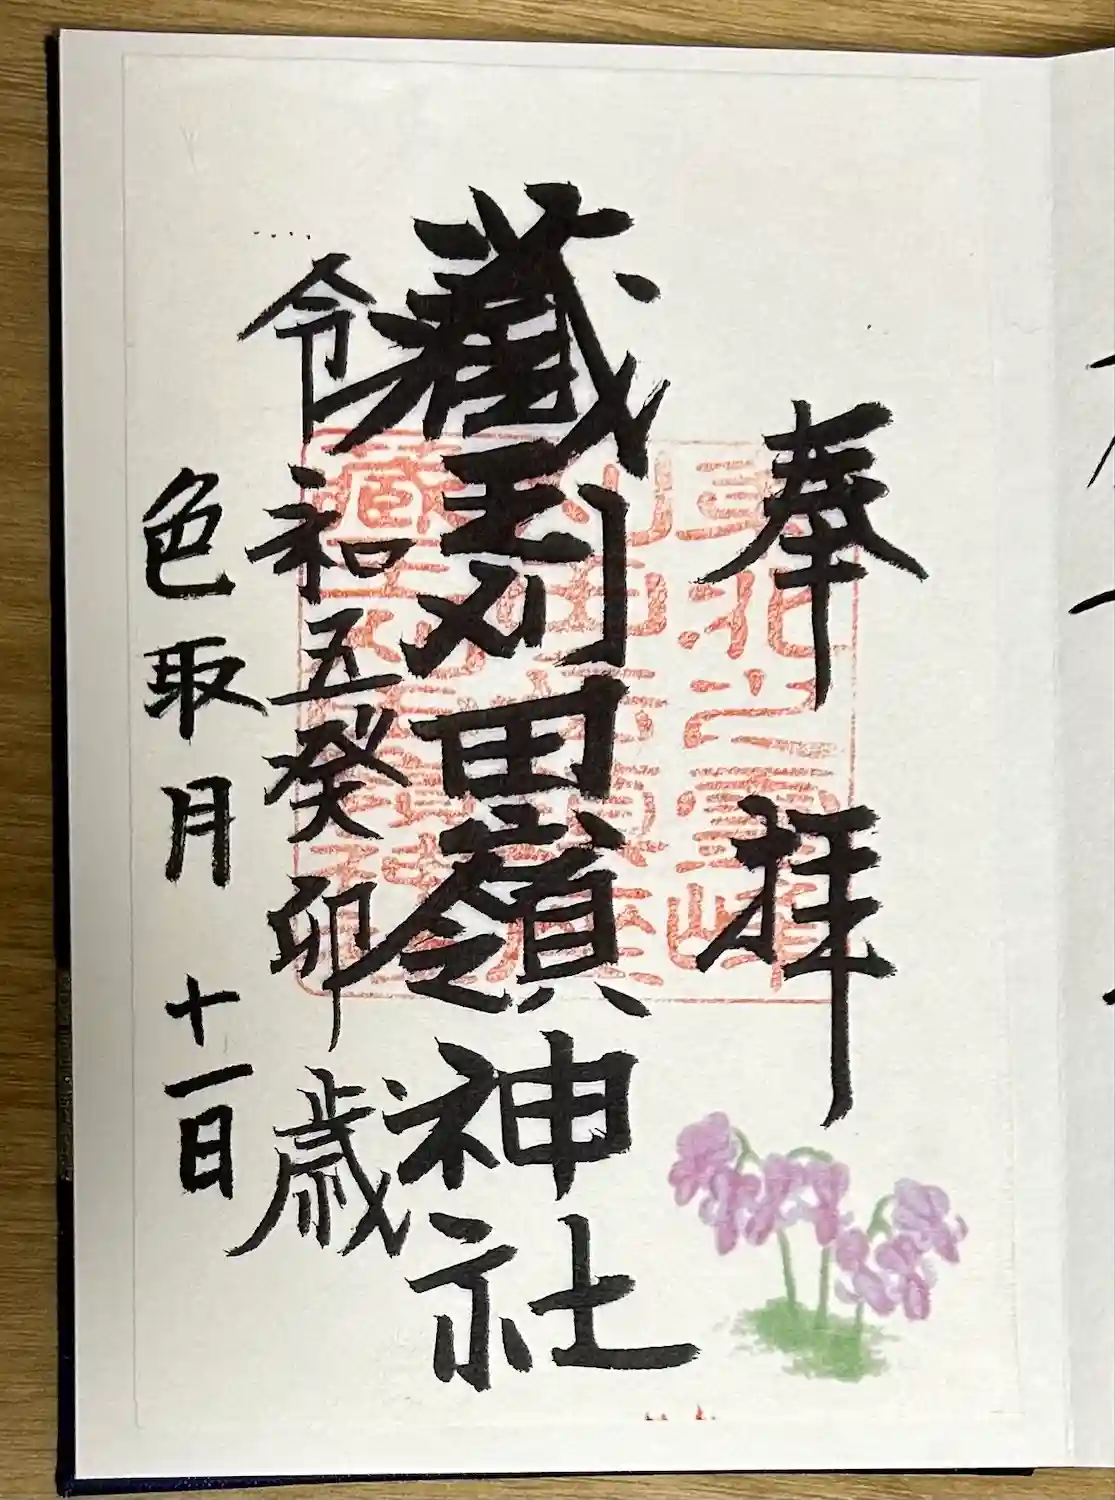 奉拝
藏王刈田嶺神社
令和五癸卯歳
色取月十一日